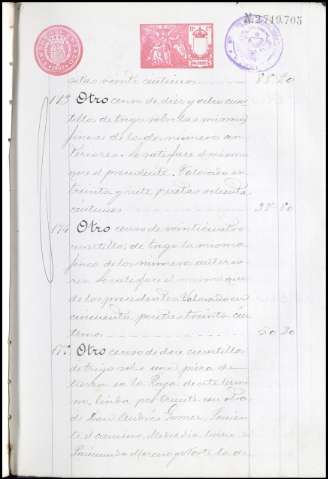 N. 2.749.705
setas veinte céntimos 88 20
173 Otro censo de diez y ocho cuar
tillos de trigo sobre las mismas
fincas de los dos números an
teriores. Lo satisface el mismo
que el precedente. Valorado en
treinta y siete pesetas ochenta
céntimos 37 80
174 Otro censo de veinticuatro
cuartillos de trigo la misma
finca de los números anterio
res. Lo satisface el mismo que
de los precedentes. Valorado en
cincuenta pesetas treinta cén
timos
175 Otro censo de doce cuartillos
de trigo sobre una pieza de
tierra en la de este termi
no, linda por Oriente con otra
de Don Andrés Gomez, Ponien
te el camino, Mediodia
Raimunda Moreno y Norte la de